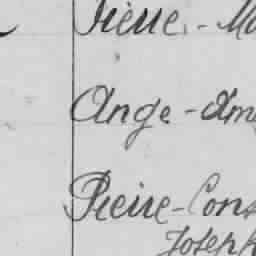 Pierre - Ma
Ange - Am
Pierre - Cons
Joseph